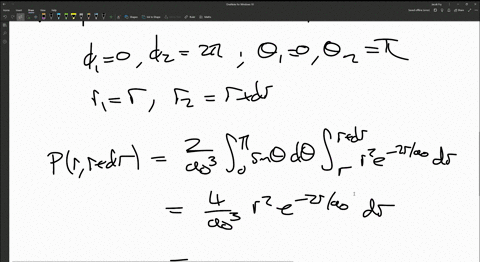 ϕ₁=0, ϕ₂=2π ; θ₁=0, θ₂=π
r₁=r, r₂=r+dr
P(r, r+dr) = 2/a₀³ ∫₀^π sinθ dθ ∫ᵣ^(r+dr) r² e^(-2r/a₀) dr
= 4/a₀³ r² e^(-2r/a₀) dr
=